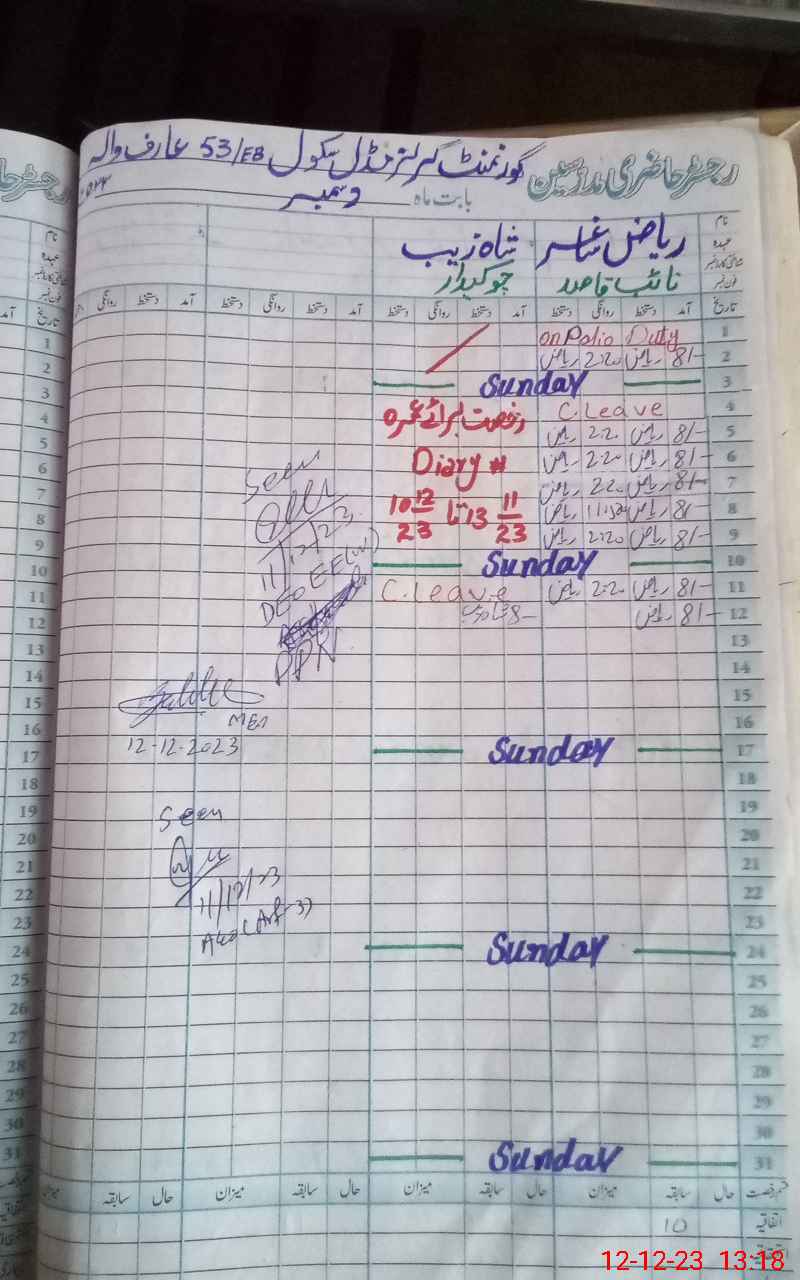 رجسٹر حاضری مدرسین گورنمنٹ گرلز مڈل سکول 53/EB عارف والہ
بابت ماہ دسمبر
نام ریاض شاہ زیب
عہدہ نائب قاصد چوکیدار
تاریخ آمد دستخط روانگی دستخط آمد دستخط روانگی دستخط آمد دستخط روانگی دستخط آمد دستخط روانگی
1 on Polio Duty
2 8/- ریاض 2:20 ریاض
3 Sunday
4 C.Leave رخصت برائے عمرہ
5 8/- ریاض 2:20 ریاض
6 8/- ریاض 2:20 ریاض Diary #
7 8/- ریاض 2:20 ریاض
8 8/- ریاض ریاض 11/23 13 تا 10 12/23
9 8/- ریاض 2:20 ریاض
10 Sunday
11 8/- ریاض 2:20 ریاض C.Leave
12 8/- ریاض 8/-
13
14
15
16
17 Sunday
18
19
20
21
22
23
24 Sunday
25
26
27
28
29
30
31 Sunday
Seen
11/12/23
DEO EE(W)
PPN
MEA
12-12-2023
Seen
11/12/23
AEO (Arf-3)
قسم رخصت حال سابقہ میزان حال سابقہ میزان حال سابقہ میزان حال سابقہ میزان
اتفاقیہ 10
12-12-23 13:18